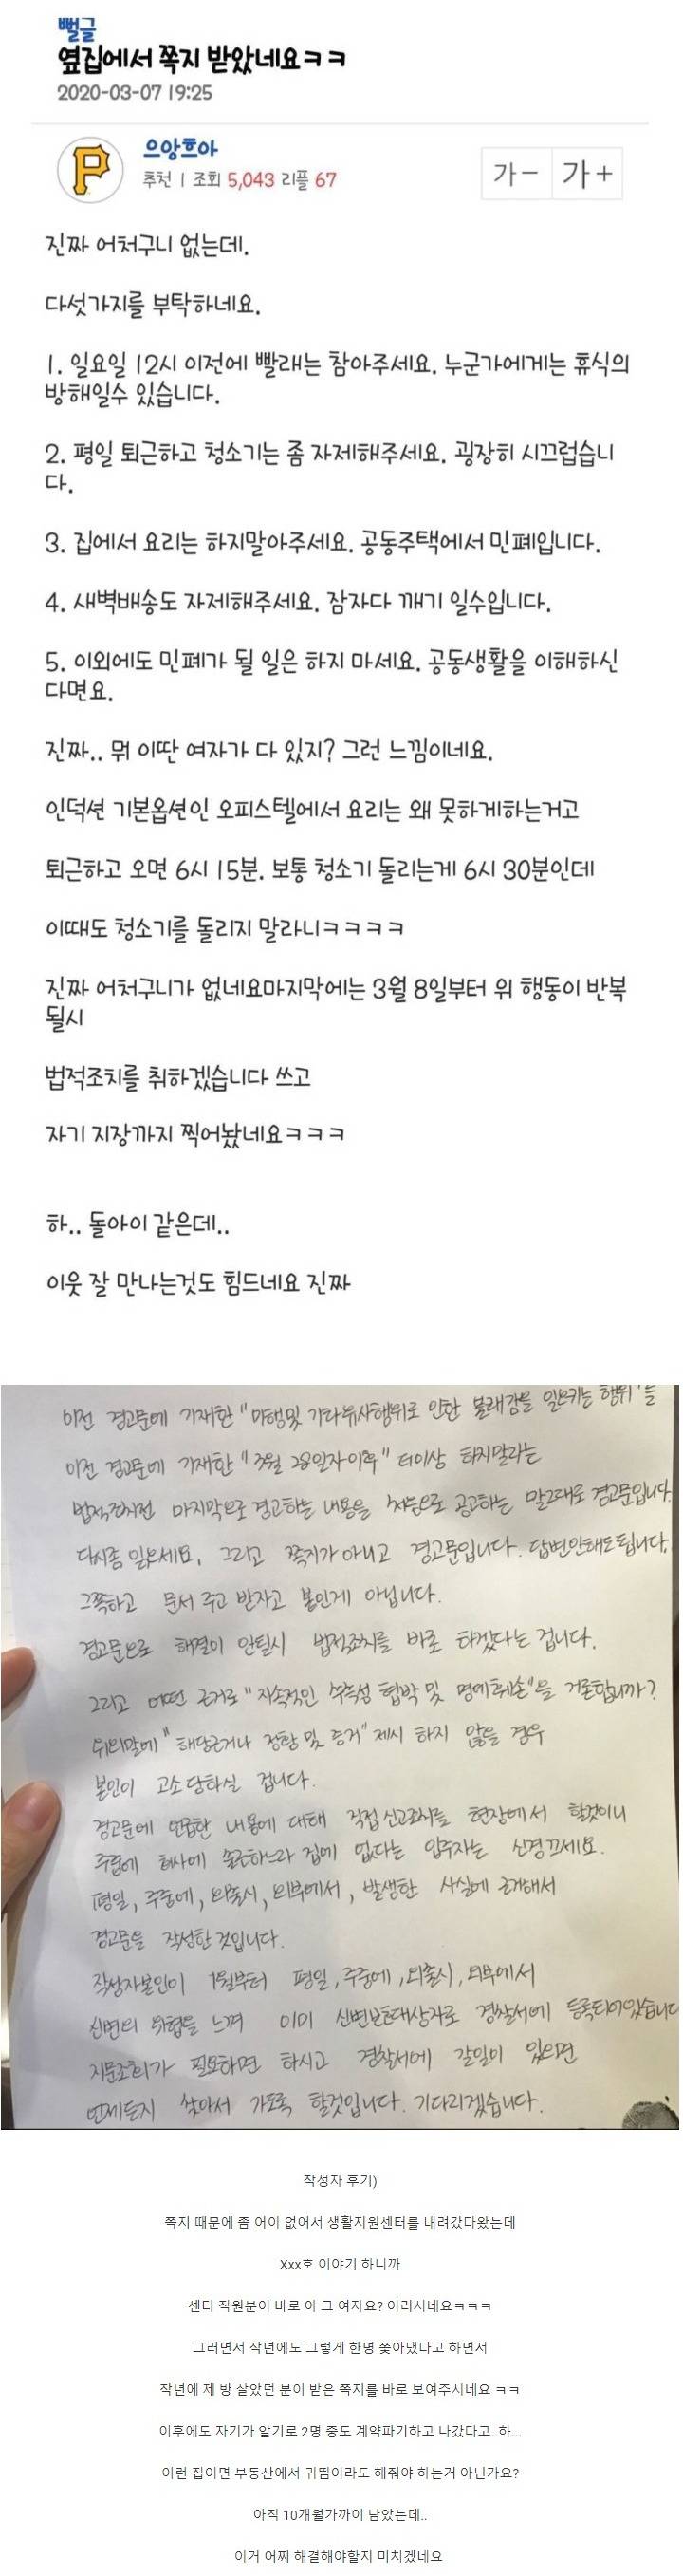 뻘글
옆집에서 쪽지 받았네요ㅋㅋ
2020-03-07 19:25
P
으앙쯔아
추천 | 조회 5,043 리플 67
가- 가+
진짜 어처구니 없는데.
다섯가지를 부탁하네요.
1. 일요일 12시 이전에 빨래는 참아주세요. 누군가에게는 휴식의
방해일수 있습니다.
2. 평일 퇴근하고 청소기는 좀 자제해주세요. 굉장히 시끄럽습니
다.
3. 집에서 요리는 하지말아주세요. 공동주택에서 민폐입니다.
4. 새벽배송도 자제해주세요. 잠자다 깨기 일수입니다.
5. 이외에도 민폐가 될 일은 하지 마세요. 공동생활을 이해하신
다면요.
진짜.. 뭐 이딴 여자가 다 있지? 그런 느낌이네요.
인덕션 기본옵션인 오피스텔에서 요리는 왜 못하게하는거고
퇴근하고 오면 6시 15분. 보통 청소기 돌리는게 6시 30분인데
이때도 청소기를 돌리지 말라니ㅋㅋㅋㅋ
진짜 어처구니가 없네요마지막에는 3월 8일부터 위 행동이 반복
될시
법적조치를 취하겠습니다 쓰고
자기 지장까지 찍어놨네요ㅋㅋㅋ
하.. 돌아이 같은데..
이웃 잘 만나는것도 힘드네요 진짜
이전 경고문에 기재한 "미행및 기타유사행위로 인한 불쾌감을 일으키는 행위"를
이전 경고문에 기재한 "3월 28일자이후" 더이상 하지말라는
법적조치전 마지막으로 경고하는 내용을 처음으로 공고하는 말그대로 경고문입니다.
다시좀 읽으세요. 그리고 쪽지가 아니고 경고문입니다. 답변안해도됩니다.
그쪽하고 문서 주고 받자고 붙인게 아닙니다.
경고문으로 해결이 안될시 법적조치를 바로 하겠다는 겁니다.
그리고 어떤 근거로 "지속적인 수측성 협박 및 명예훼손"을 거론합니까?
위의말에 "해당근거나 정황 및 증거" 제시 하지 않을 경우
본인이 고소당하실 겁니다.
경고문에 언급한 내용에 대해 직접신고조치를 현장에서 할것이니
주중에 회사에 출근하느라 집에 없다는 입주자는 신경끄세요.
평일, 주중에, 외출시, 외부에서, 발생한 사실에 근거해서
경고문을 작성한것입니다.
작성자본인이 1월부터 평일, 주중에, 외출시, 외부에서
신변의 위협을 느껴 이미 신변보호대상자로 경찰서에 등록되어있습니다
지문조회가 필요하면 하시고 경찰서에 갈일이 있으면
언제든지 찾아서 가도록 할것입니다. 기다리겠습니다.
작성자 후기)
쪽지 때문에 좀 어이 없어서 생활지원센터를 내려갔다왔는데
Xxx호 이야기 하니까
센터 직원분이 바로 아 그 여자요? 이러시네요ㅋㅋㅋ
그러면서 작년에도 그렇게 한명 쫒아냈다고 하면서
작년에 제 방 살았던 분이 받은 쪽지를 바로 보여주시네요 ㅋㅋ
이후에도 자기가 알기로 2명 중도 계약파기하고 나갔다고..하...
이런 집이면 부동산에서 귀띔이라도 해줘야 하는거 아닌가요?
아직 10개월가까이 남았는데..
이거 어찌 해결해야할지 미치겠네요